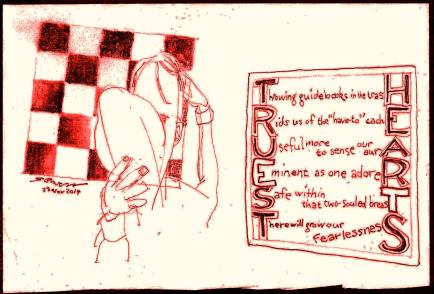 27 Nov 2014
Throwing guidebooks in the trasH
Rids us of the "have-to" eachE
Useful more
to sense our aurA
Eminent as one adoreR
Safe within
that two-souled breasT
There will grow our
FearlessnesS